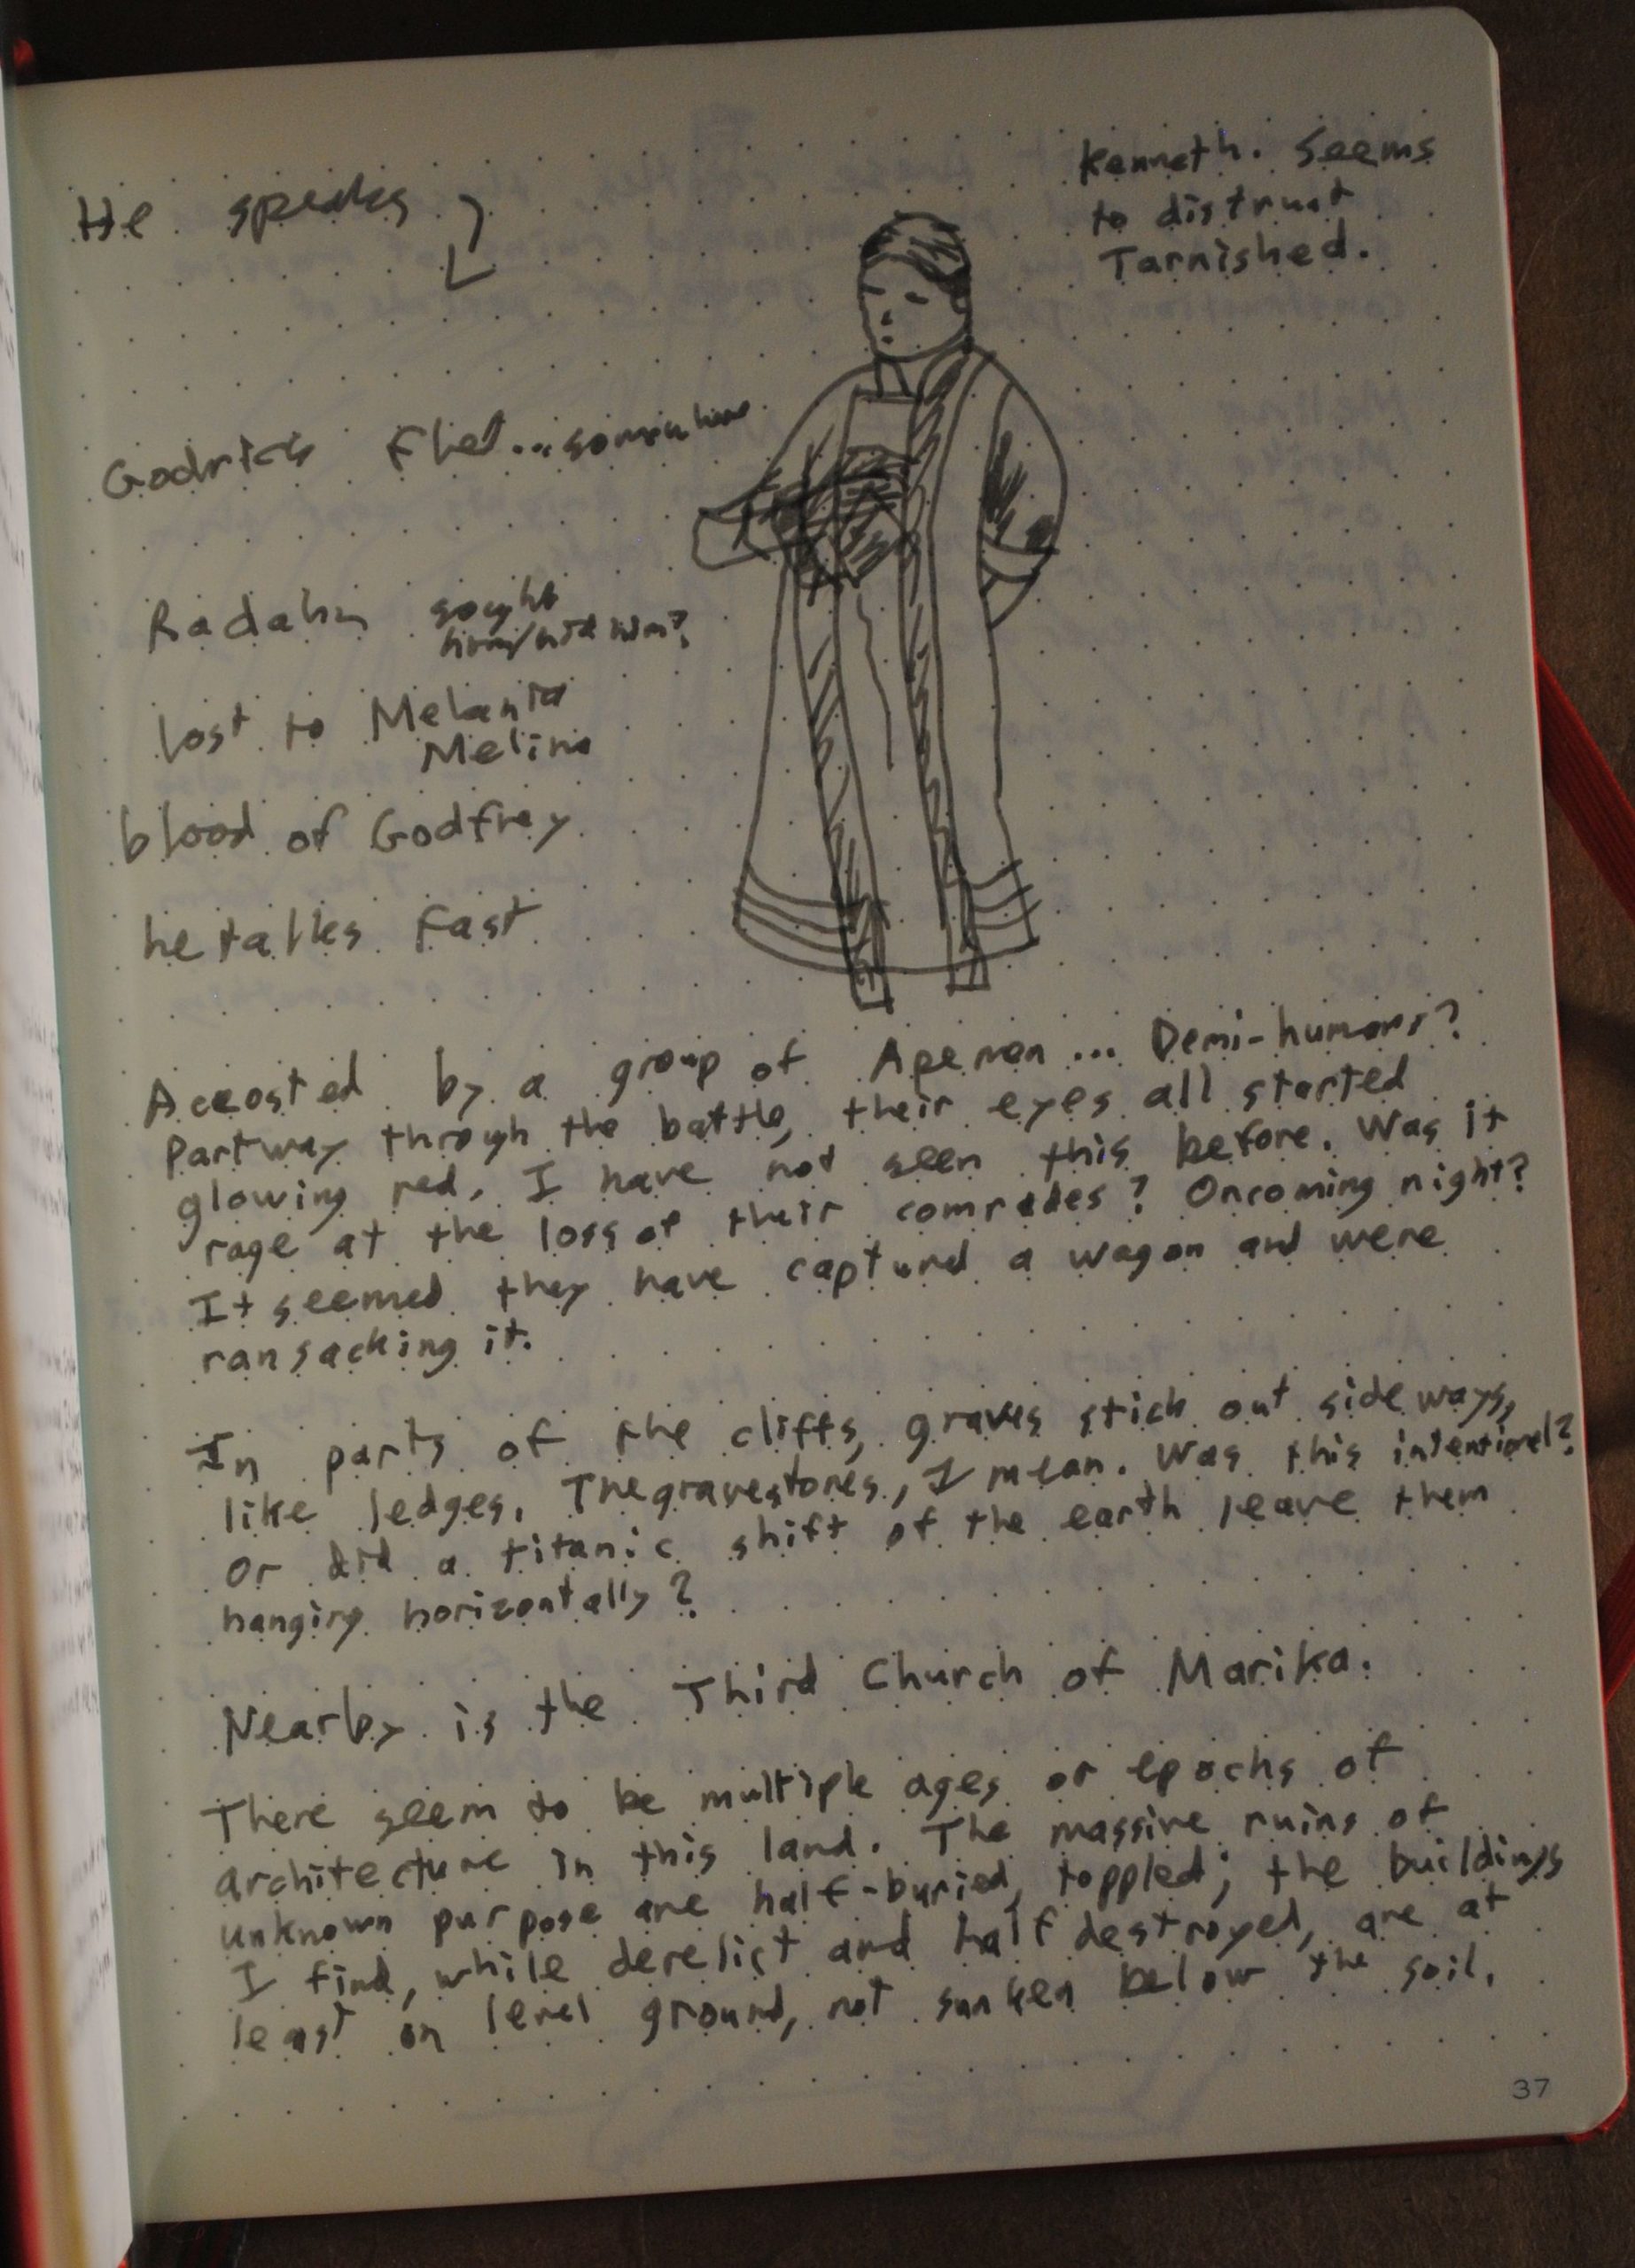 Kenneth. Seems
to distrust
Tarnished.
He speaks
Godrick fled... somewhere
Radahn sought
him/hid him?
lost to Melania
Melina
blood of Godfrey
he talks fast
Accosted by a group of Apemen... Demi-humans?
Partway through the battle, their eyes all started
glowing red. I have not seen this before. Was it
rage at the loss of their comrades? Oncoming night?
It seemed they have captured a wagon and were
ransacking it.
In parts of the cliffs, graves stick out sideways,
like ledges. The gravestones, I mean. Was this intentional?
Or did a titanic shift of the earth leave them
hanging horizontally?
Nearby is the Third Church of Marika.
There seem to be multiple ages or epochs of
architecture in this land. The massive ruins of
unknown purpose are half-buried, toppled; the buildings
I find, while derelict and half destroyed, are at
least on level ground, not sunken below the soil.
37